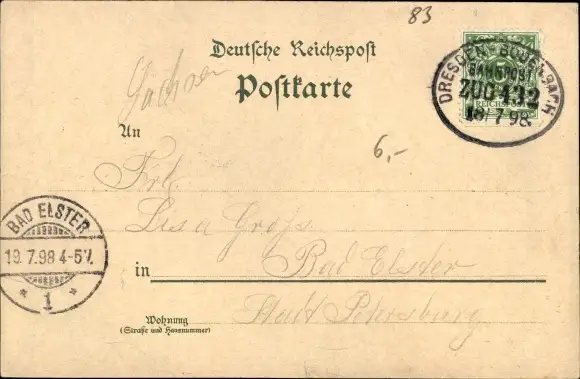 83
Deutsche Reichspost
Postkarte
Sachsen
DRESDEN - BODENBACH
BAHNPOST
ZUG 432
18/7 98.
REICHSPOST
An
6,-
Frl.
Lisa Gross
BAD ELSTER
19. 7. 98 4-5V.
* 1 *
in Bad Elster
Stadt Petersburg
Wohnung
(Straße und Hausnummer)